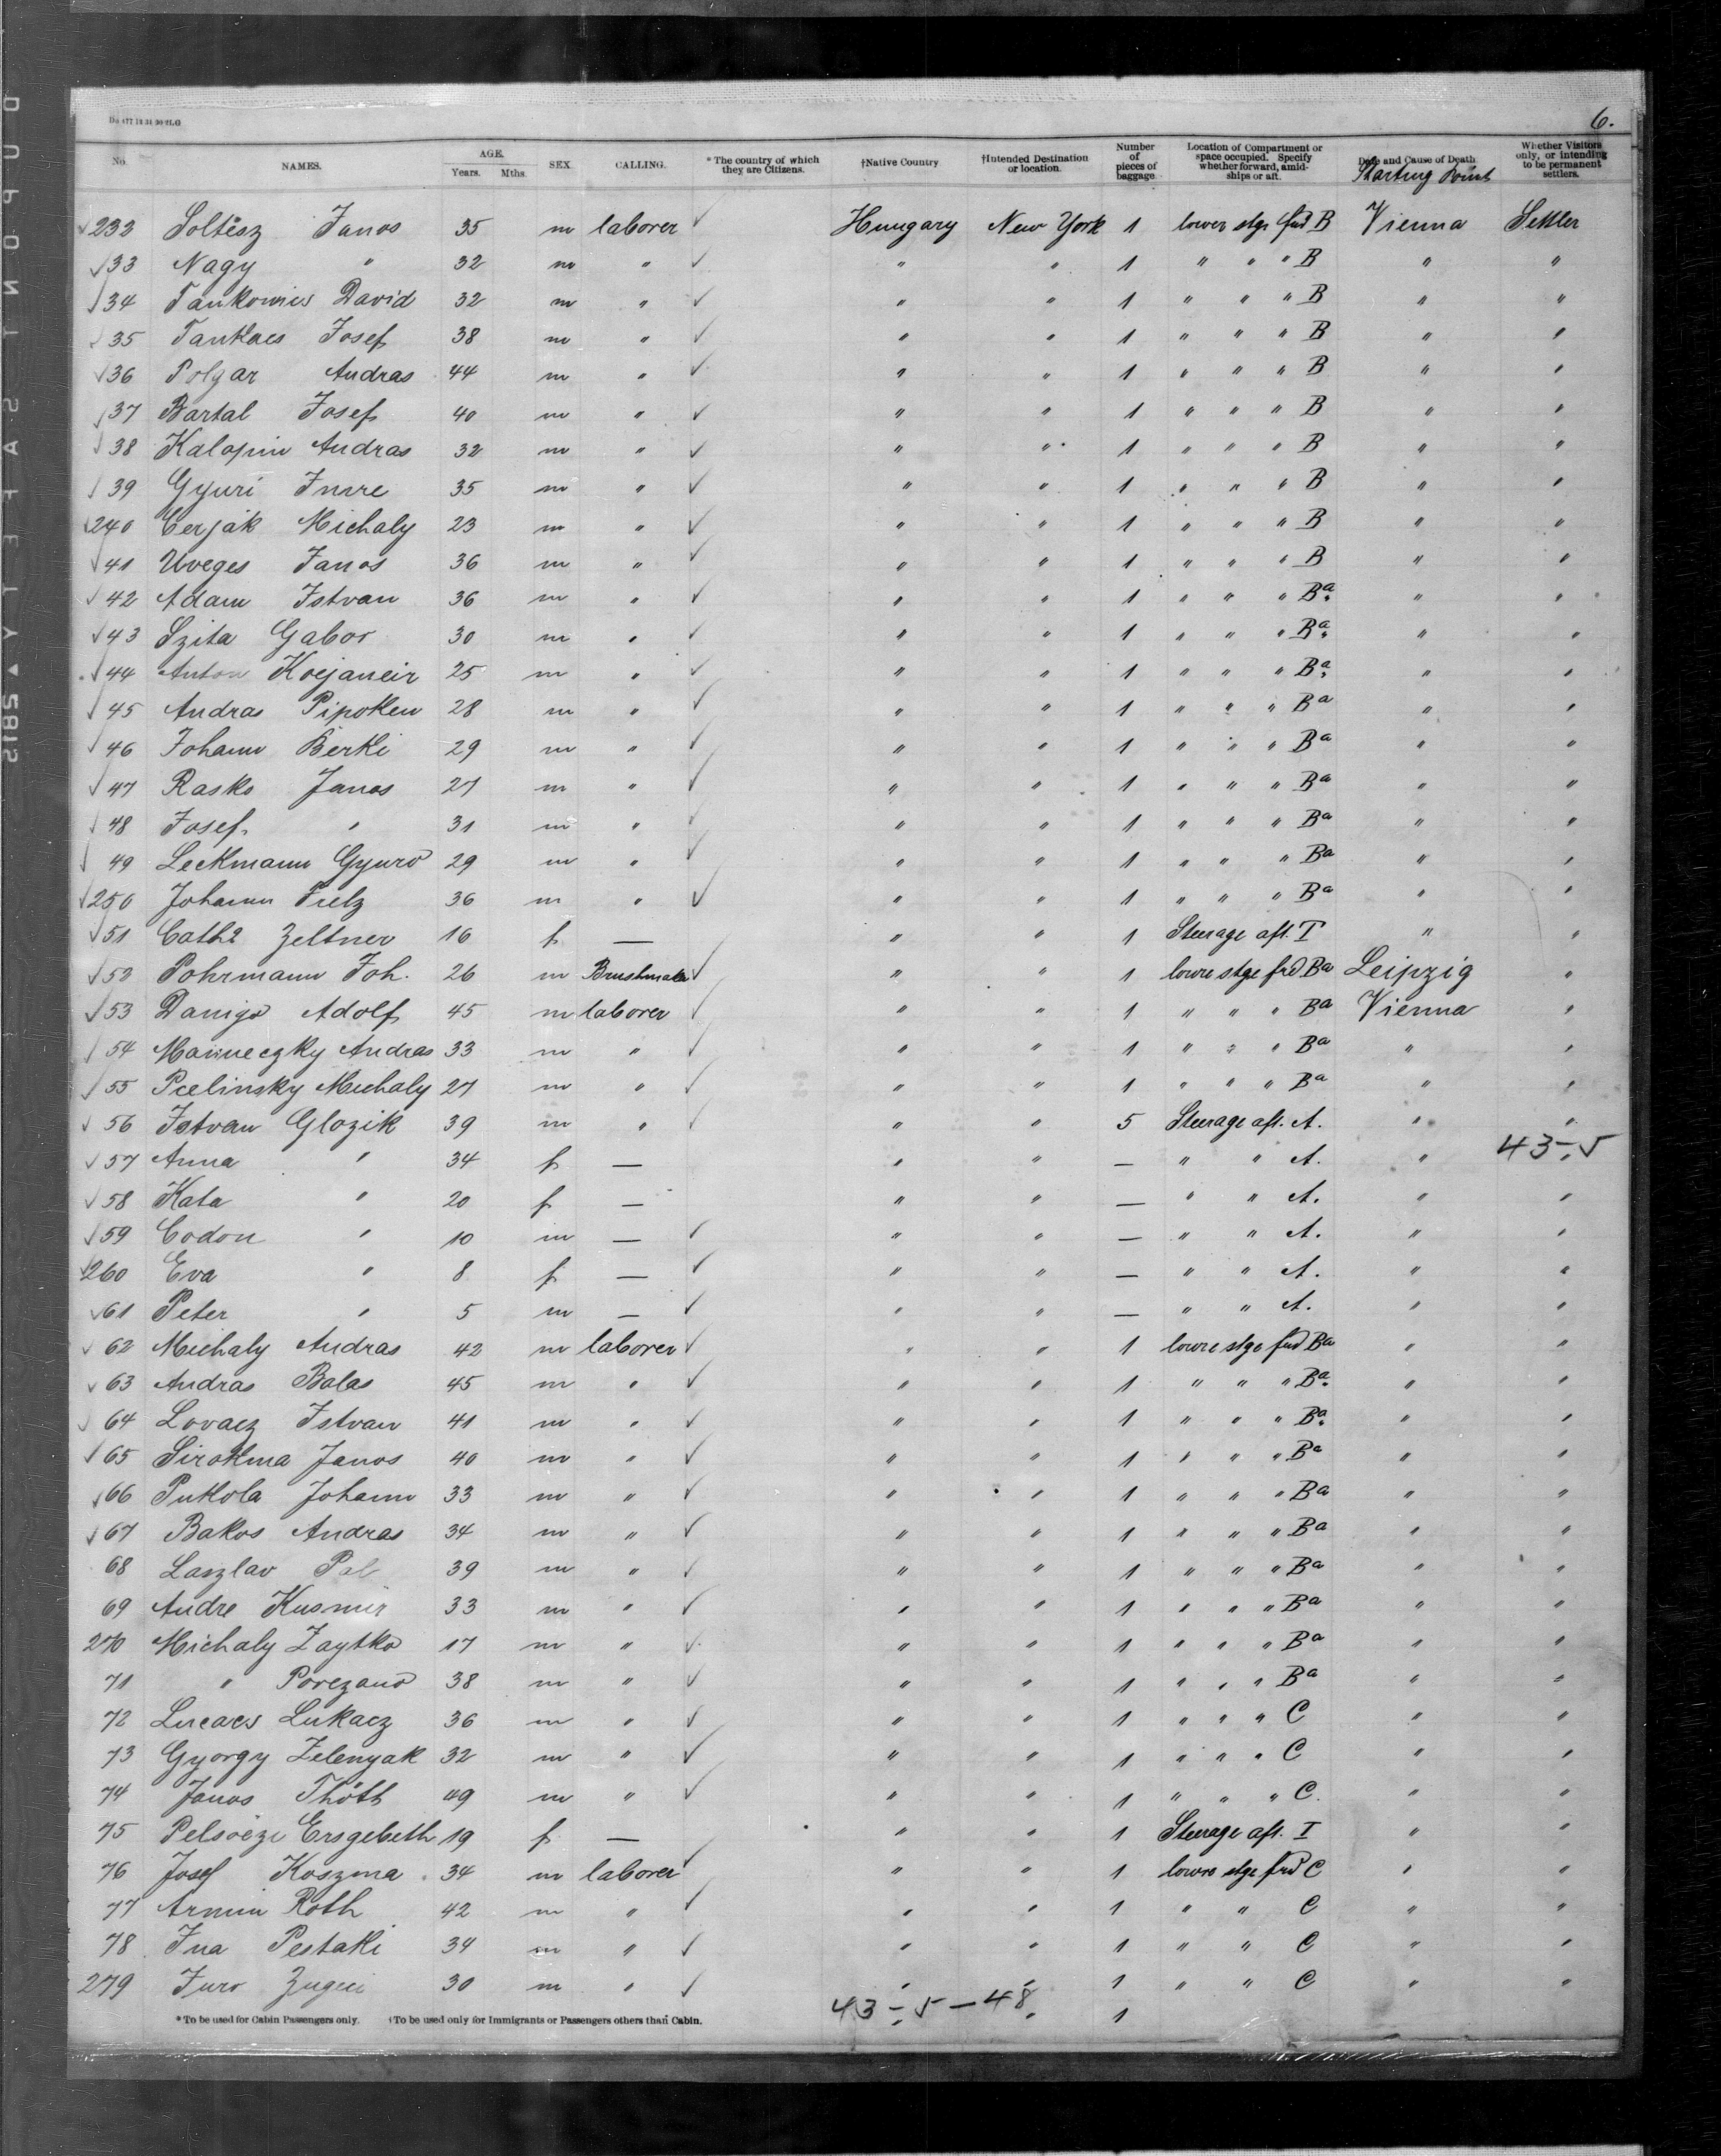 6.
No. NAMES. AGE. Years. Mths. SEX. CALLING. * The country of which they are Citizens. †Native Country †Intended Destination or location. Number of pieces of baggage Location of Compartment or space occupied. Specify whether forward, amidships or aft. Date and Cause of Death Starting Point Whether Visitors only, or intending to be permanent settlers.
232 Soltész Janos 35 m laborer ✓ Hungary New York 1 lower stge fwd B Vienna Settler
33 Nagy " 32 m " ✓ " " 1 " " " B " "
34 David 32 m " ✓ " " 1 " " " B " "
35 Josef 38 m " ✓ " " 1 " " " B " "
36 Polgar Andras 44 m " ✓ " " 1 " " " B " "
37 Bartal Josef 40 m " ✓ " " 1 " " " B " "
38 Andras 32 m " ✓ " " 1 " " " B " "
39 Gyuri Imre 35 m " ✓ " " 1 " " " B " "
240 Cerják Michaly 23 m " ✓ " " 1 " " " B " "
41 Uveges Janos 36 m " ✓ " " 1 " " " B " "
42 Adam Istvan 36 m " ✓ " " 1 " " " Ba " "
43 Szita Gabor 30 m " ✓ " " 1 " " " Ba " "
44 Anton 25 m " ✓ " " 1 " " " Ba " "
45 Andras 28 m " ✓ " " 1 " " " Ba " "
46 Johann Berki 29 m " ✓ " " 1 " " " Ba " "
47 Rasko Janos 27 m " ✓ " " 1 " " " Ba " "
48 Josef " 31 m " ✓ " " 1 " " " Ba " "
49 Leckmann Gyuro 29 m " ✓ " " 1 " " " Ba " "
250 Johann 36 m " ✓ " " 1 " " " Ba " "
51 Zeltner 16 f — " " 1 Steerage aft. T " "
52 Pohrmann Joh. 26 m Brushmaker ✓ " " 1 lowre stge frd Ba Leipzig "
53 Adolf 45 m laborer ✓ " " 1 " " " Ba Vienna "
54 Andras 33 m " ✓ " " 1 " " " Ba " "
55 Pcelinsky Michaly 27 m " ✓ " " 1 " " " Ba " "
56 Istvan Glozik 39 m " ✓ " " 5 Steerage aft. A. " "
57 Anna " 34 f — " " — " " A. " "
43–5
58 Kata " 20 f — " " — " " A. " "
59 Codon " 10 m — ✓ " " — " " A. " "
260 Eva " 8 f — ✓ " " — " " A. " "
61 Peter " 5 m — ✓ " " — " " A. " "
62 Michaly Andras 42 m laborer ✓ " " 1 lowre stge fwd Ba " "
63 Andras Balas 45 m " ✓ " " 1 " " " Ba " "
64 Lovacz Istvan 41 m " ✓ " " 1 " " " Ba " "
65 Sirokma Janos 40 m " ✓ " " 1 " " " Ba " "
66 Putkola Johann 33 m " ✓ " " 1 " " " Ba " "
67 Bakos Andras 34 m " ✓ " " 1 " " " Ba " "
68 Laszlav Pal 39 m " ✓ " " 1 " " " Ba " "
69 Andre Kusmir 33 m " ✓ " " 1 " " " Ba " "
270 Michaly Zaytko 17 m " ✓ " " 1 " " " Ba " "
71 " 38 m " ✓ " " 1 " " " Ba " "
72 Lucacs Lukacz 36 m " ✓ " " 1 " " " C " "
73 Gyorgy Zelenyak 32 m " ✓ " " 1 " " " C " "
74 Janos Thóth 49 m " ✓ " " 1 " " " C. " "
75 Ersgebeth 19 f — " " 1 Steerage aft. I " "
76 Josef Koszma 34 m laborer ✓ " " 1 lowre stge frd C " "
77 Armin Roth 42 m " ✓ " " 1 " " C " "
78 Pestaki 34 m " ✓ " " 1 " " C " "
279 Juro 30 m " ✓ " " 1 " " C " "
43–5–48 " 1
* To be used for Cabin Passengers only. †To be used only for Immigrants or Passengers others than Cabin.